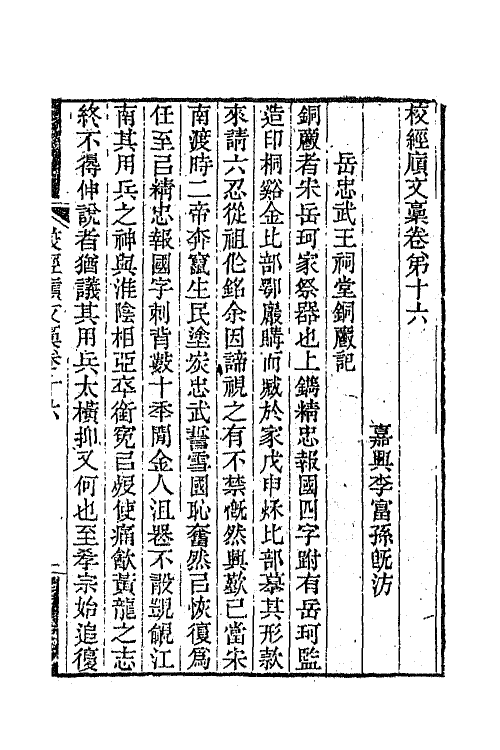 校經廎文稾卷弟十六
嘉興李富孫旣汸
岳忠武王祠堂銅爵記
銅爵者宋岳珂家祭器也上鐫精忠報國四字跗有岳珂監
造印桐谿金比部鄂巖購而臧於家戊申秌比部摹其形款
來請六忍從祖伦銘余因諦視之有不禁慨然興歎已當宋
南渡時二帝奔竄生民塗炭忠武誓雪國恥奮然㠯恢復爲
任至㠯精忠報國字刺背數十秊閒金人沮器不敢覬覦江
南其用兵之神與淮陰相亞卒銜寃㠯歿使痛歓黃龍之志
終不得伸說者猶議其用兵太橫抑又何也至孝宗始追復
校經廎文稾卷十六
一